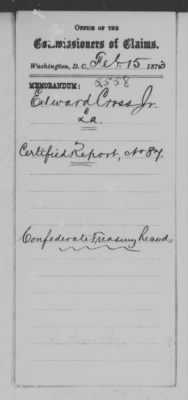 OFFICE OF THE
Commissioners of Claims.
Washington, D. C., Feb 15 1873
MEMORANDUM: 5558
Edward Cross Jr.
La.
Certified Report, No 87.
Confederate Treasury Records